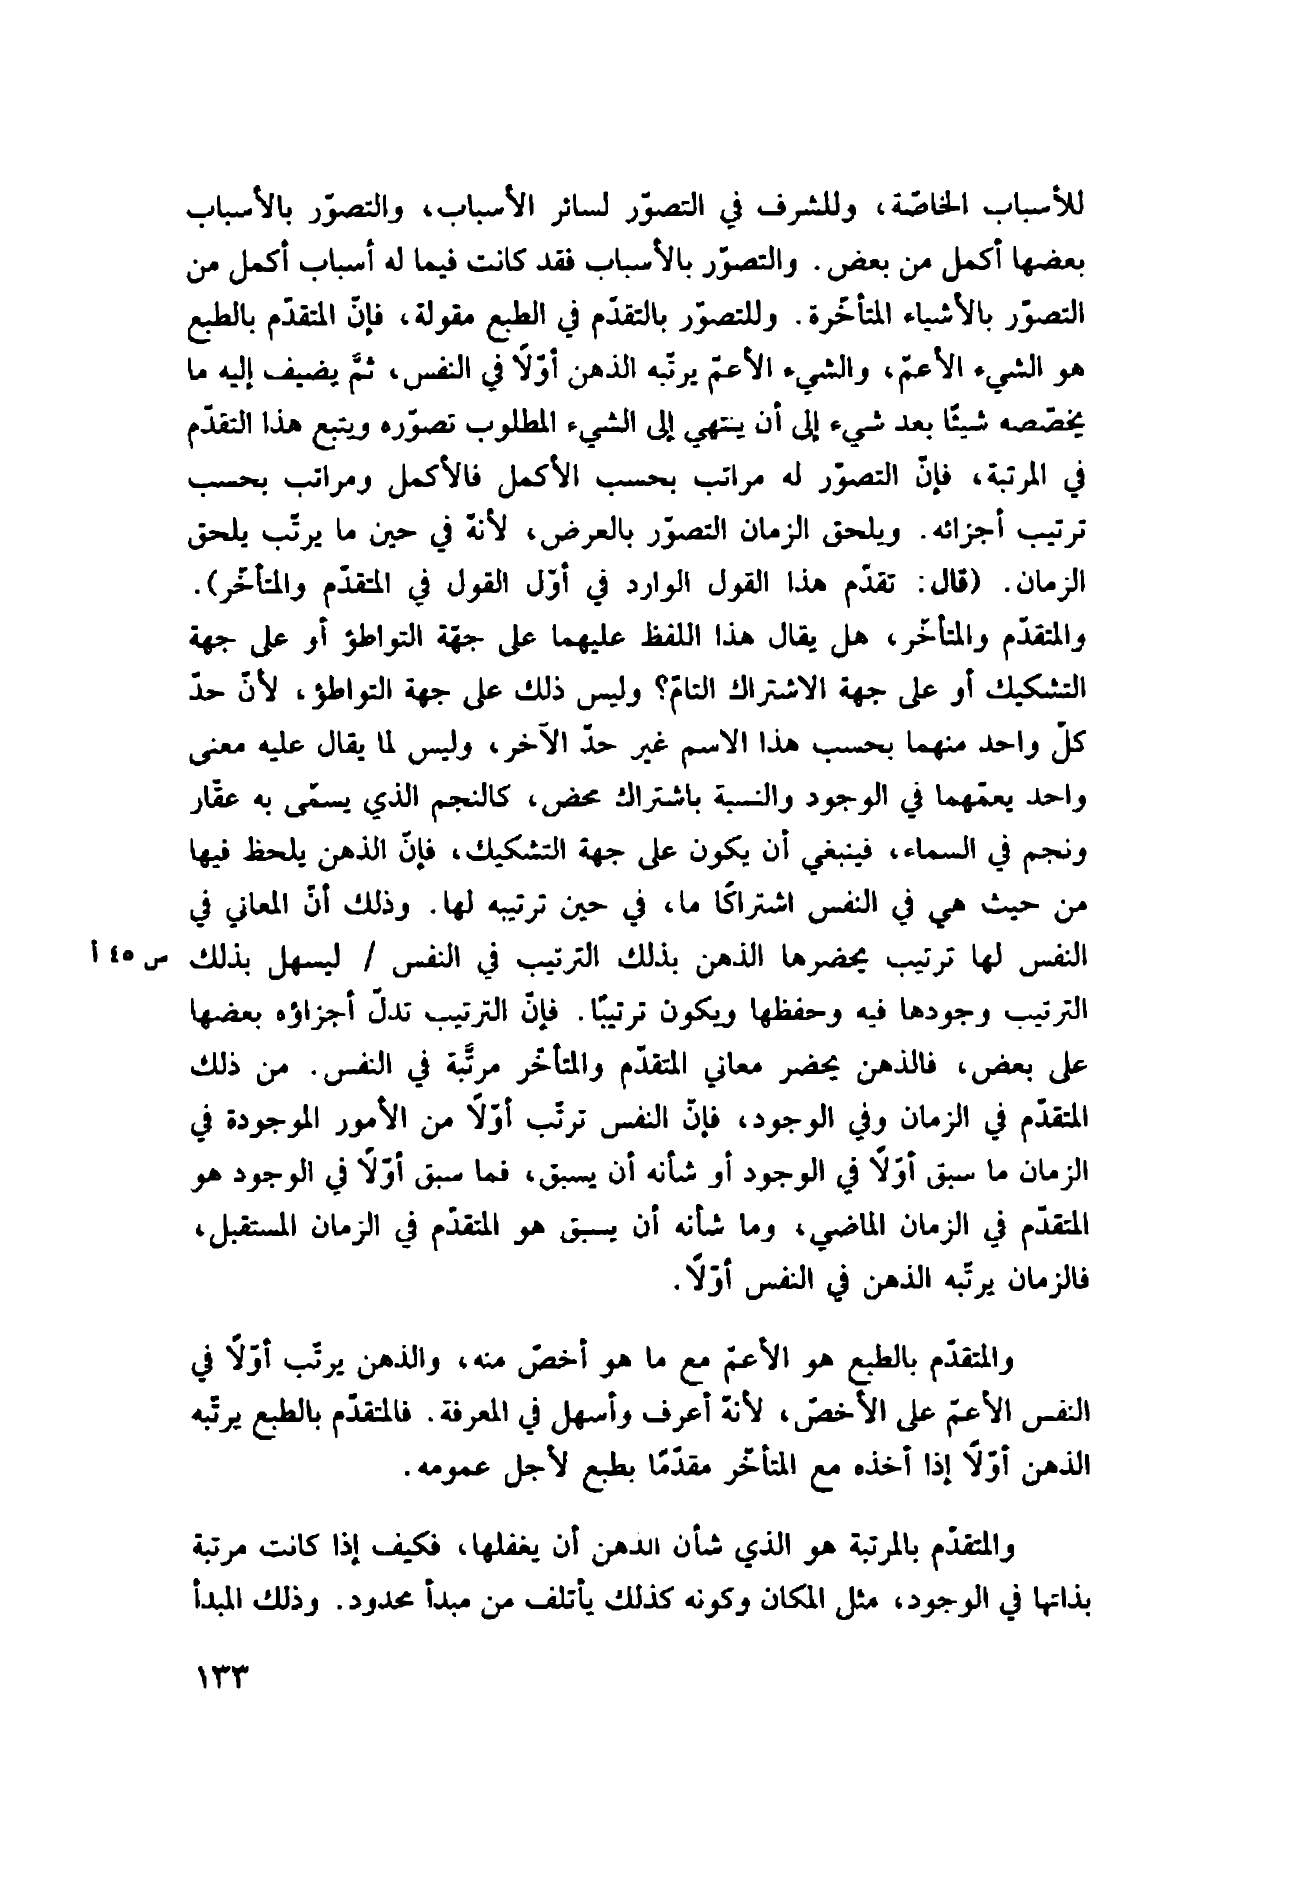 للأسباب الخاصّة، وللشرف في التصوّر لسائر الأسباب، والتصوّر بالأسباب
بعضها أكمل من بعض. والتصوّر بالأسباب فقد كانت فيما له أسباب أكمل من
التصوّر بالأشياء المتأخّرة. وللتصوّر بالتقدّم في الطبع مقولة، فإنّ المتقدّم بالطبع
هو الشيء الأعمّ، والشيء الأعمّ يرتّبه الذهن أوّلًا في النفس، ثمّ يضيف إليه ما
يخصّصه شيئًا بعد شيء إلى أن ينتهي إلى الشيء المطلوب تصوّره ويتبع هذا التقدّم
في المرتبة، فإنّ التصوّر له مراتب بحسب الأكمل فالأكمل ومراتب بحسب
ترتيب أجزائه. ويلحق الزمان التصوّر بالعرض، لأنهّ في حين ما يرتّب يلحق
الزمان. (قال: تقدّم هذا القول الوارد في أوّل القول في المتقدّم والمتأخّر).
والمتقدّم والمتأخّر، هل يقال هذا اللفظ عليهما على جهّة التواطؤ أو على جهة
التشكيك أو على جهة الاشتراك التامّ؟ وليس ذلك على جهة التواطؤ، لأنّ حدّ
كلّ واحد منهما بحسب هذا الاسم غير حدّ الآخر، وليس لما يقال عليه معنى
واحد يعمّهما في الوجود والنسبة باشتراك محض، كالنجم الذي يسمّى به عقّار
ونجم في السماء، فينبغي أن يكون على جهة التشكيك، فإنّ الذهن يلحظ فيها
من حيث هي في النفس اشتراكًا ما، في حين ترتيبه لها. وذلك أنّ المعاني في
النفس لها ترتيب يحضرها الذهن بذلك الترتيب في النفس / ليسهل بذلك س ٤٥ أ
الترتيب وجودها فيه وحفظها ويكون ترتيبًا. فإنّ الترتيب تدلّ أجزاؤه بعضها
على بعض، فالذهن يحضر معاني المتقدّم والمتأخّر مرتَّبة في النفس. من ذلك
المتقدّم في الزمان وفي الوجود، فإنّ النفس ترتّب أوّلًا من الأمور الموجودة في
الزمان ما سبق أوّلًا في الوجود أو شأنه أن يسبق، فما سبق أوّلًا في الوجود هو
المتقدّم في الزمان الماضي، وما شأنه أن يسبق هو المتقدّم في الزمان المستقبل،
فالزمان يرتّبه الذهن في النفس أوّلًا.
والمتقدّم بالطبع هو الأعمّ مع ما هو أخصّ منه، والذهن يرتّب أوّلًا في
النفس الأعمّ على الأخصّ، لأنهّ أعرف وأسهل في المعرفة. فالمتقدّم بالطبع يرتّبه
الذهن أوّلًا إذا أخذه مع المتأخّر مقدّمًا بطبع لأجل عمومه.
والمتقدّم بالمرتبة هو الذي شأن الذهن أن يغفلها، فكيف إذا كانت مرتبة
بذاتها في الوجود، مثل المكان وكونه كذلك يأتلف من مبدأ محدود. وذلك المبدأ
١٣٣